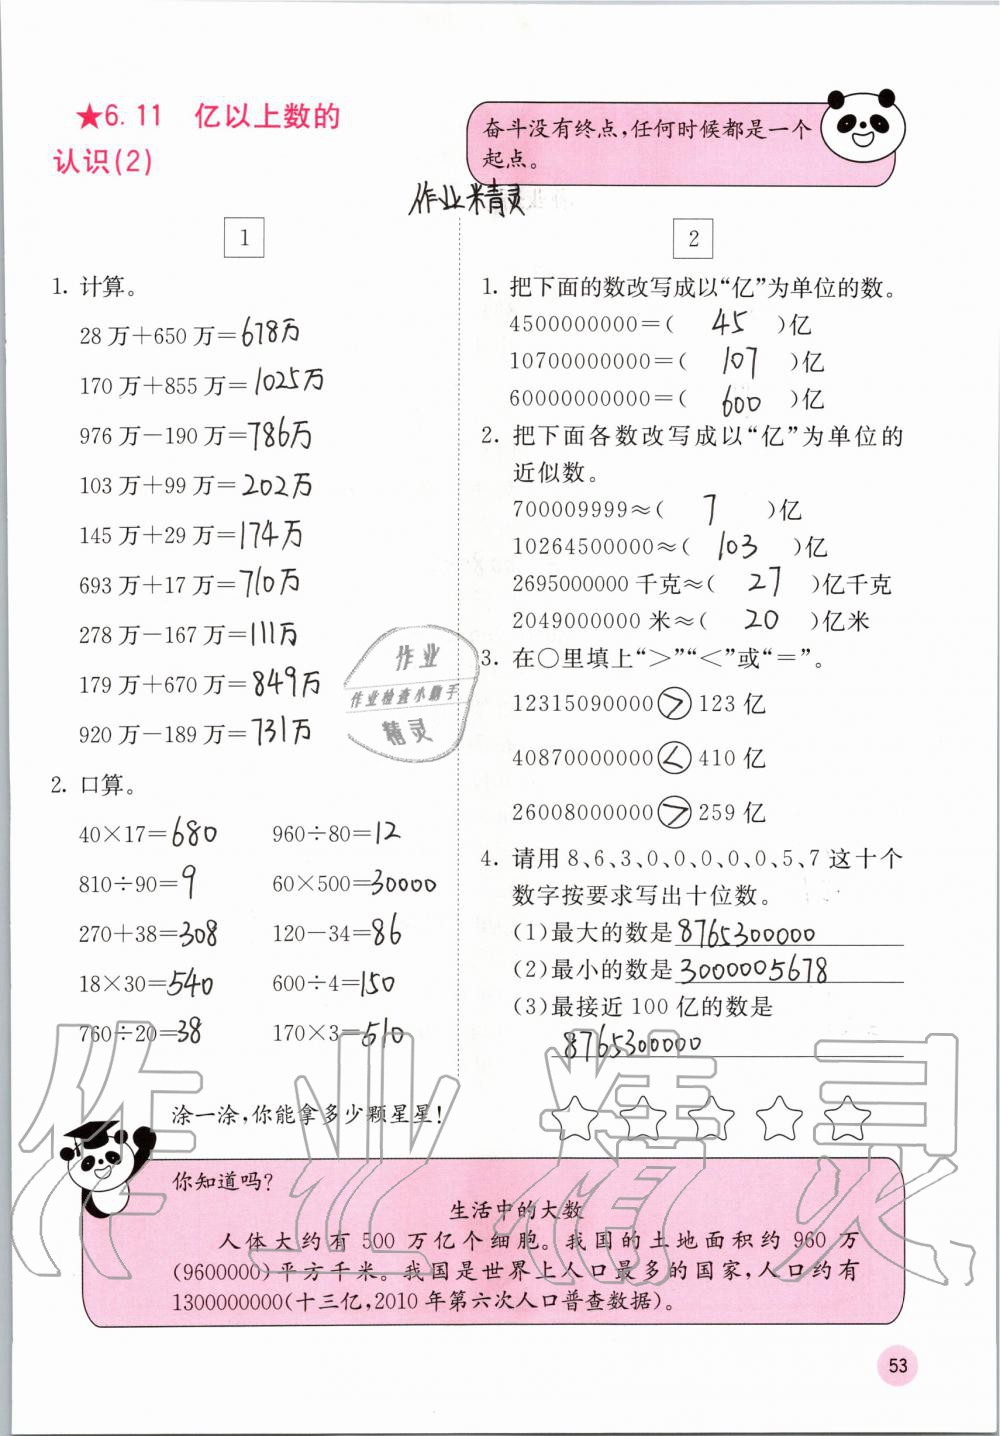 ★6.11 亿以上数的
认识(2)
奋斗没有终点,任何时候都是一个
起点。
作业精灵
1
1. 计算。
28万+650万=678万
170万+855万=1025万
976万-190万=786万
103万+99万=202万
145万+29万=174万
693万+17万=710万
278万-167万=111万
179万+670万=849万
920万-189万=731万
2. 口算。
40×17=680 960÷80=12
810÷90=9 60×500=30000
270+38=308 120-34=86
18×30=540 600÷4=150
760÷20=38 170×3=510
2
1. 把下面的数改写成以“亿”为单位的数。
4500000000=( 45 )亿
10700000000=( 107 )亿
60000000000=( 600 )亿
2. 把下面各数改写成以“亿”为单位的
近似数。
700009999≈( 7 )亿
10264500000≈( 103 )亿
2695000000千克≈( 27 )亿千克
2049000000米≈( 20 )亿米
3. 在○里填上“>”“<”或“=”。
12315090000>123亿
40870000000<410亿
26008000000>259亿
4. 请用8、6、3、0、0、0、0、0、5、7这十个
数字按要求写出十位数。
(1)最大的数是8765300000
(2)最小的数是3000005678
(3)最接近100亿的数是
8765300000
作业
作业检查小助手
精灵
涂一涂,你能拿多少颗星星!
作业精灵
你知道吗?
生活中的大数
人体大约有500万亿个细胞。我国的土地面积约960万
(9600000)平方千米。我国是世界上人口最多的国家,人口约有
1300000000(十三亿,2010年第六次人口普查数据)。
53